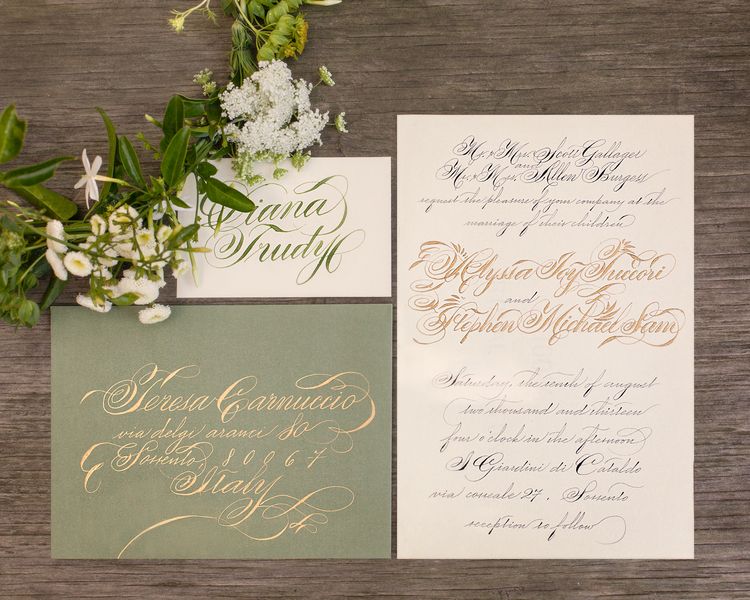 Diana
Trudy
Teresa Carnuccio
via degli aranci 80
Sorrento, 80067
Italy
Mr. & Mrs. Scott Gallager
and
Mr. & Mrs. Allen Burgess
request the pleasure of your company at the
marriage of their children
Alyssa Joy Tuccori
and
Stephen Michael Sam
Saturday, the tenth of august
two thousand and thirteen
four o'clock in the afternoon
I Giardini di Cataldo
via correale 27. Sorrento
reception to follow